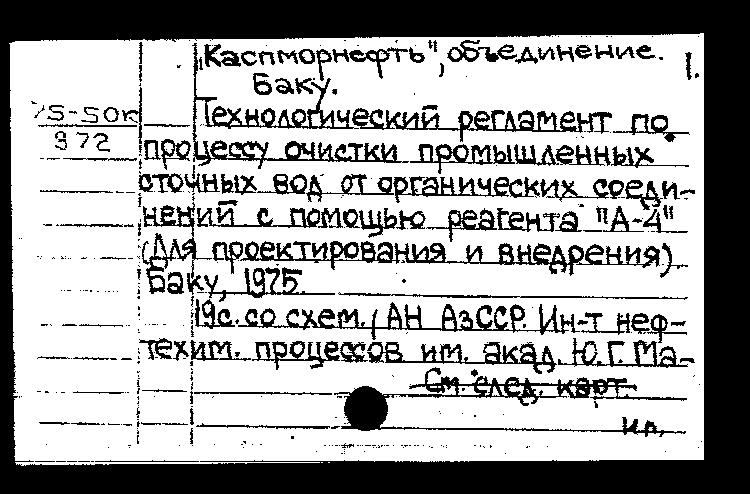 „Каспморнефть", объединение. 1.
Баку.
75-50к
972
Технологический регламент по
процессу очистки промышленных
сточных вод от органических соеди-
нений с помощью реагента "А-4"
(Для проектирования и внедрения).
Баку, 1975.
19с. со схем. (АН АзССР. Ин-т неф-
техим. процессов им. акад. Ю.Г. Ма-
См. след. карт.